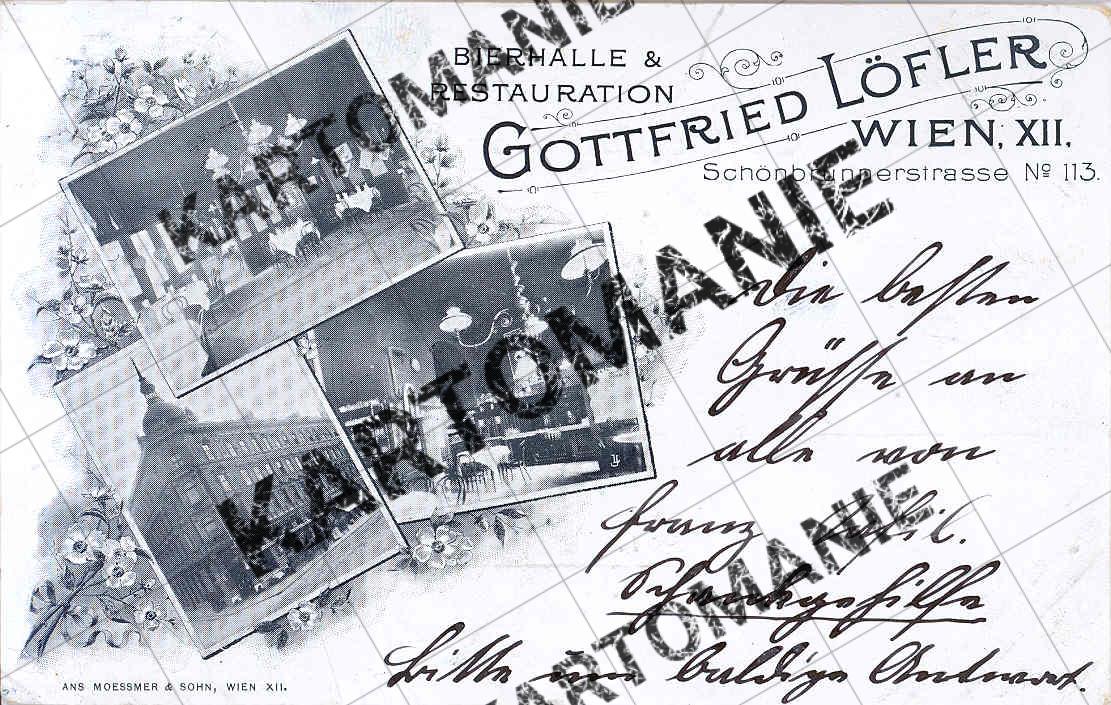 BIERHALLE &
RESTAURATION
GOTTFRIED LÖFLER
WIEN, XII.
Schönbrunnerstrasse № 113.
Die besten
Grüsse an
alle von
Franz
Schankgehilfe
Bitte um baldige Antwort.
ANS MOESSMER & SOHN, WIEN XII.
KARTOMANIE
KARTOMANIE
KARTOMANIE
KARTOMANIE